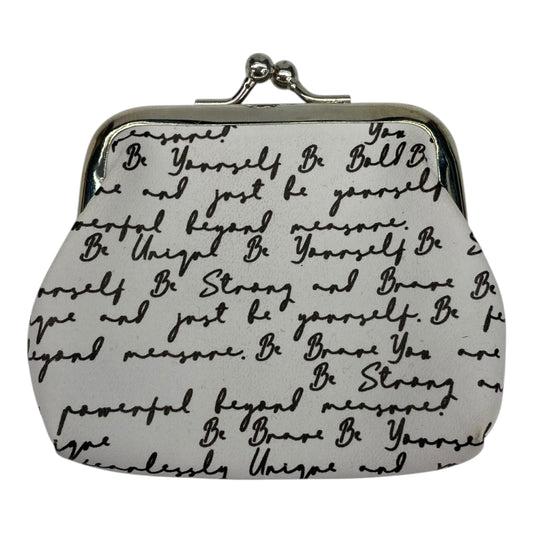 measure! You
Be Yourself Be Bold B
and just be yourself
powerful beyond measure.
Be Unique Be Yourself Be S
yourself Be Strong and Brave Be
ique and just be yourself. Be fe
beyond measure. Be Brave You are
Be Strong an
powerful beyond measure!
ique Be Brave Be Yourself
fearlessly Unique and